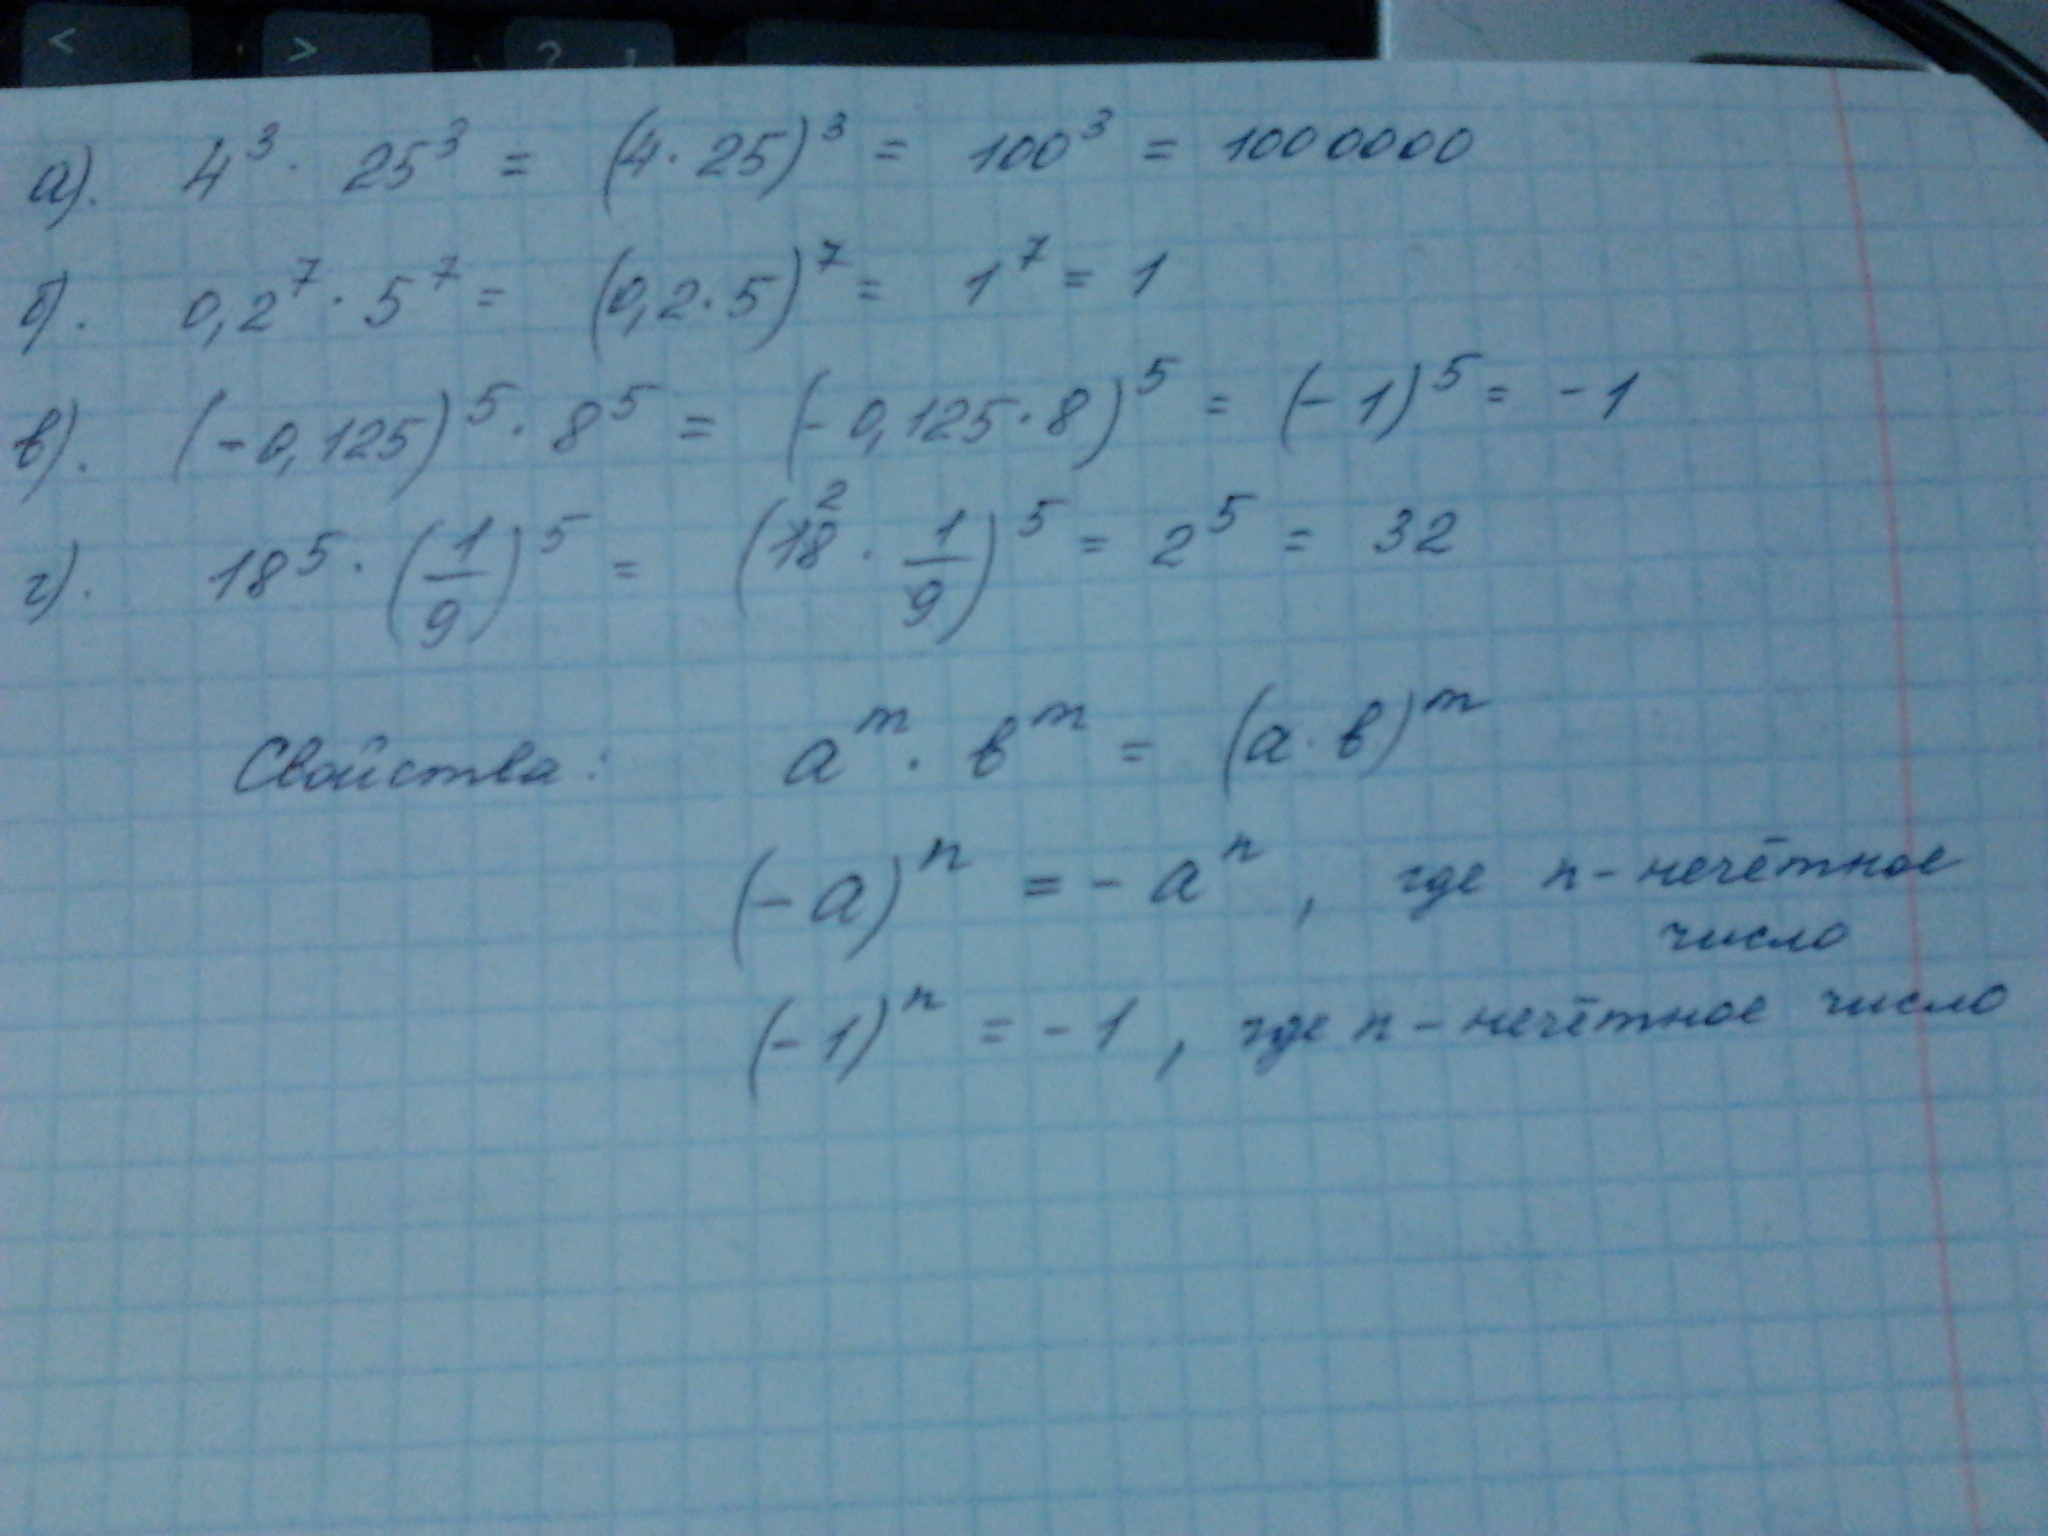 < > ? ,
а). 4³ · 25³ = (4 · 25)³ = 100³ = 1000000
б). 0,2⁷ · 5⁷ = (0,2 · 5)⁷ = 1⁷ = 1
в). (-0,125)⁵ · 8⁵ = (-0,125 · 8)⁵ = (-1)⁵ = -1
г). 18⁵ · (1/9)⁵ = (18² · 1/9)⁵ = 2⁵ = 32
Свойства: aᵐ · вᵐ = (a · в)ᵐ
(-a)ⁿ = -aⁿ, где n - нечётное
число
(-1)ⁿ = -1, где n - нечётное число